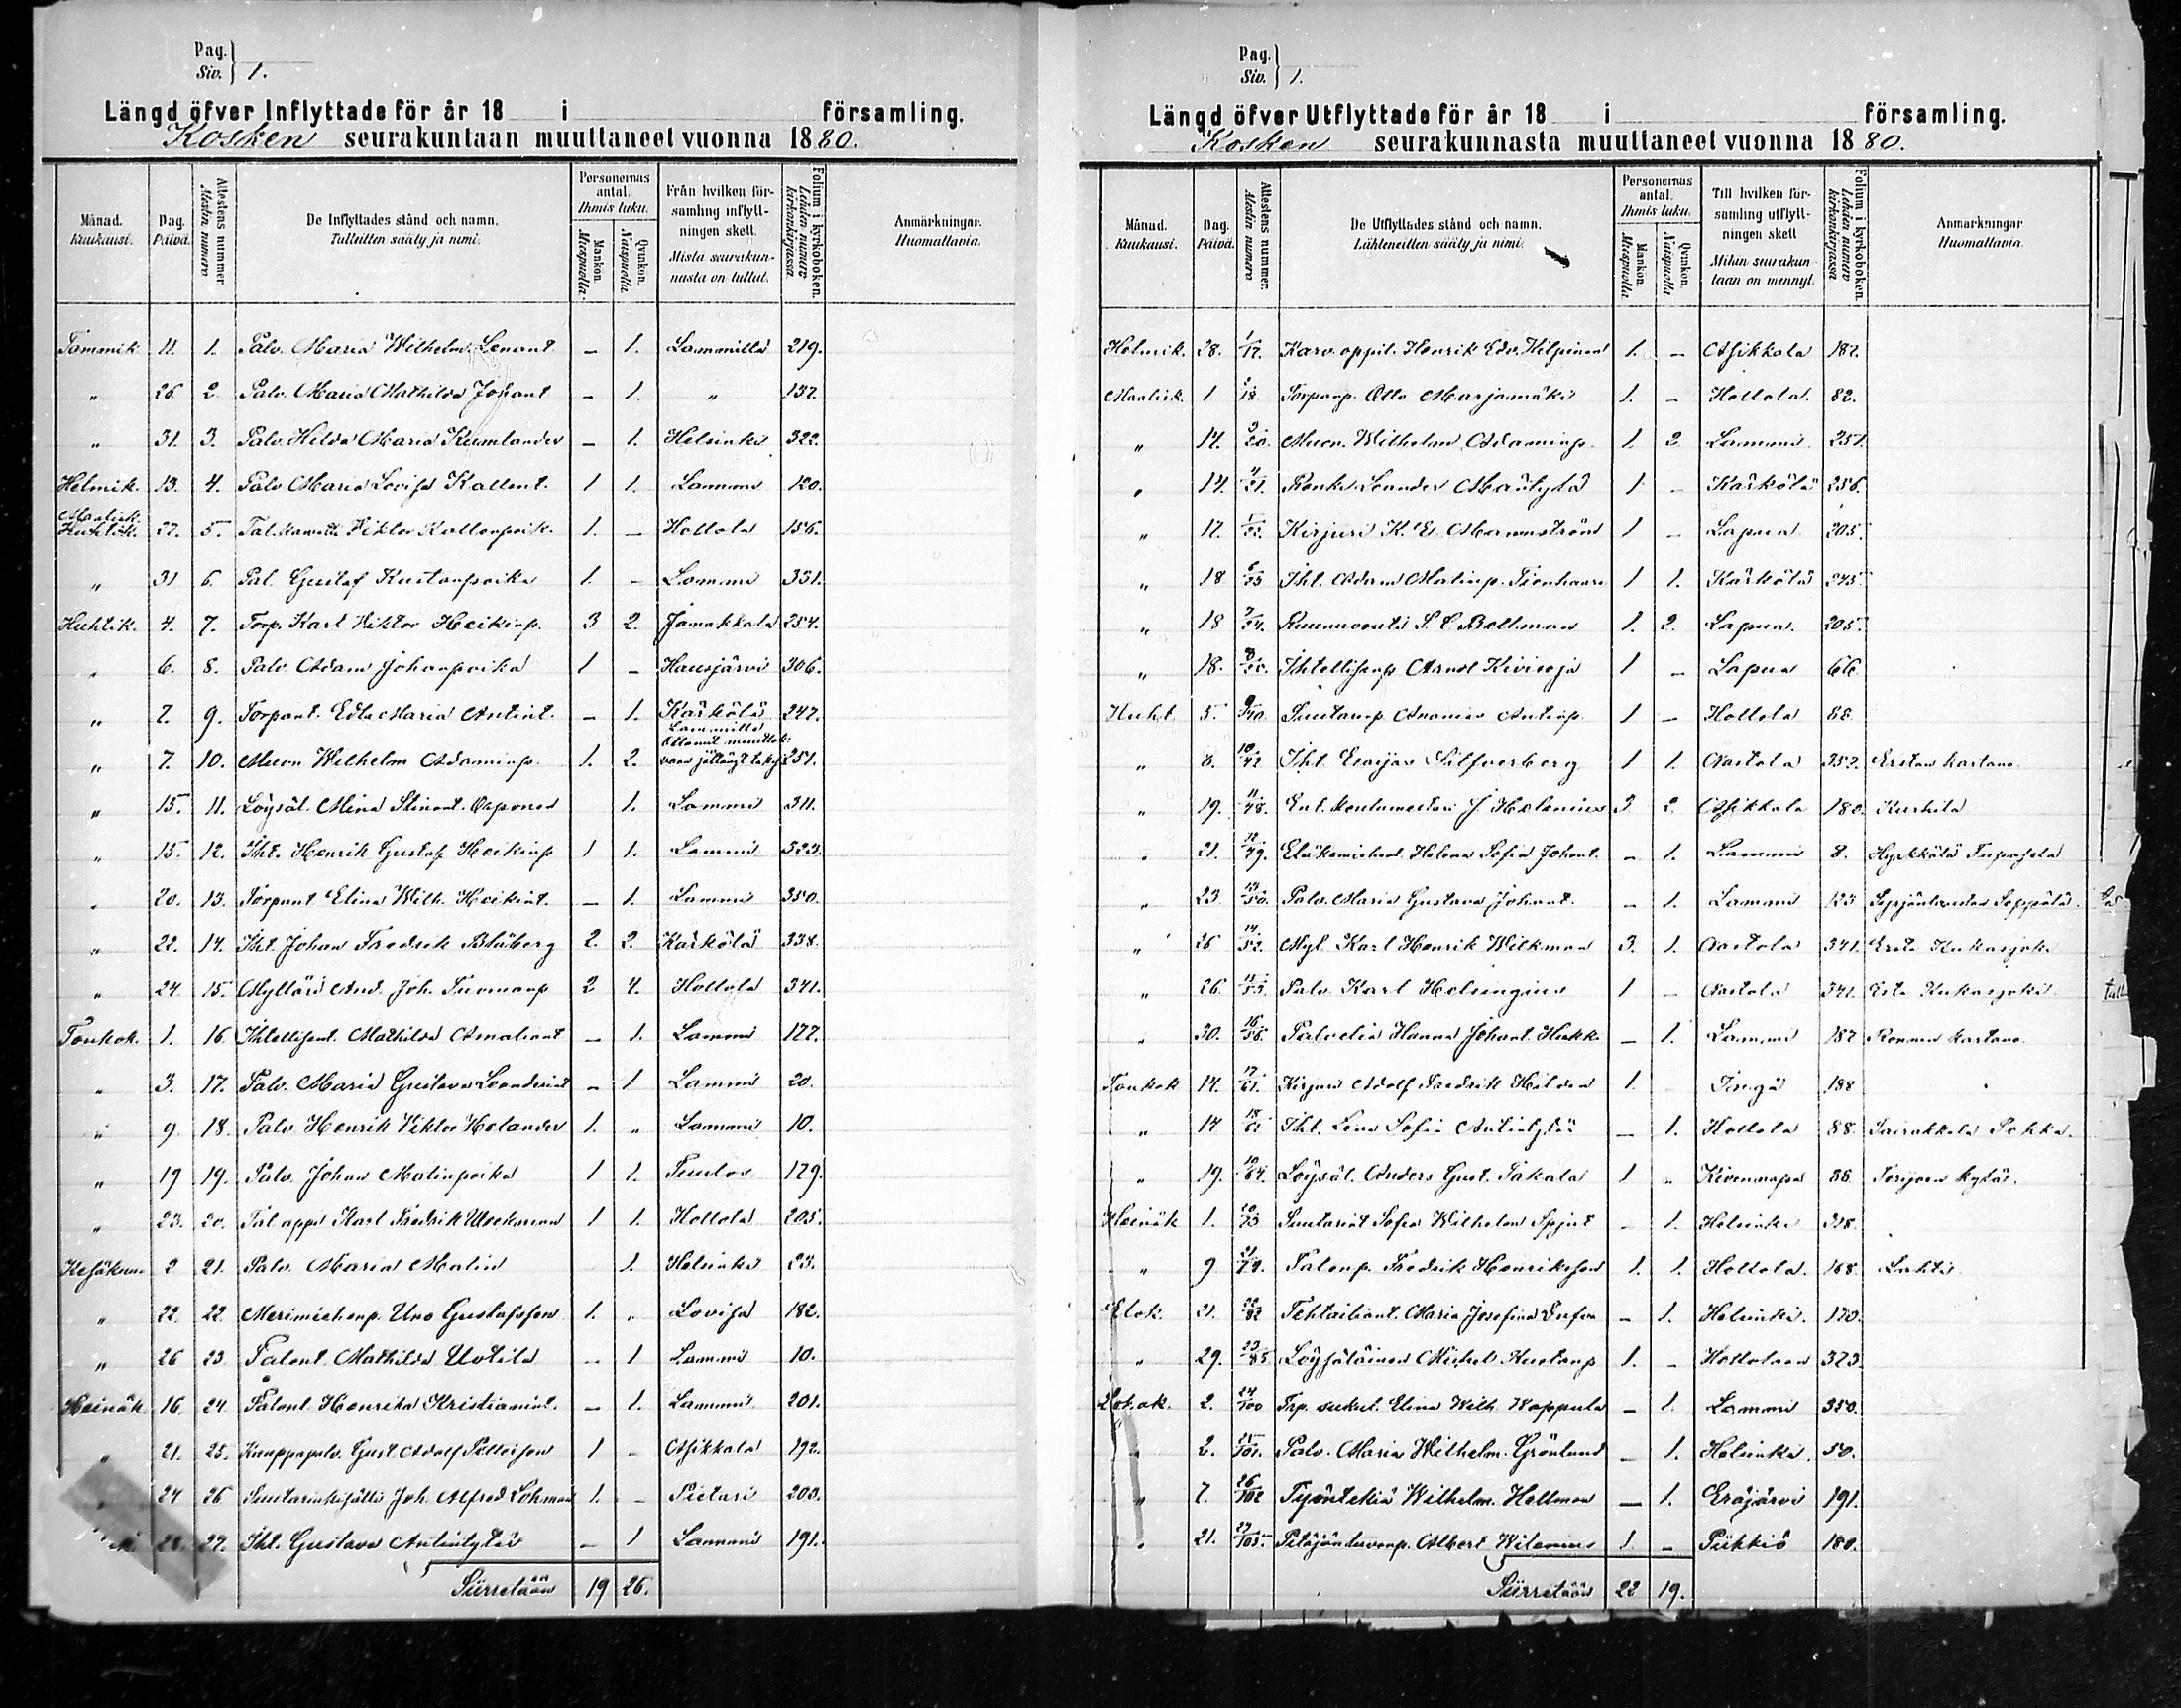 Pag. Siv. 1.
Längd öfver Inflyttade för år 18 i församling.
Kosken seurakuntaan muuttaneet vuonna 1880.
Månad. Kuukausi.
Dag. Päivä.
Attestens nummer. Atestin numero
De Inflyttades stånd och namn. Tulleitten sääty ja nimi.
Personernas antal. Ihmis luku.
Mankön. Miespuolia.
Qvinkön. Naispuolia
Från hvilken församling inflyttningen skett. Mistä seurakunnasta on tullut.
Folium i kyrkoboken. Lehden numero kirkonkirjassa.
Anmärkningar. Huomattavia.
Tammik. 11. 1. Palv. Maria Wilhelm. Lenant. – 1. Lammilta 219.
„ 26. 2. Palv. Maria Mathilda Johant – 1. „ 137.
„ 31. 3. Palv. Hilda Maria Kumlander – 1. Helsinki 322.
Helmik. 13. 4. Palv. Maria Lovisa Kallent. 1 1. Lammi 120.
Maalisk.
Huhtik. 27. 5. Viktor Kallenpoik. 1. – Hollola 156.
„ 31 6. Pal. Gustaf Kustaanpoika 1. – Lammi 331.
Huhtik. 4. 7. Torp. Karl Viktor Heikinp. 3 2. Janakkala 254.
„ 6. 8. Palv. Adam Johanpoika 1 – Hausjärvi 306.
„ 7. 9. Torpant. Edla Maria Antint. – 1. Kärkölä 247.
Lammilta
„ 7. 10. Muon Wilhelm Adaminp. 1. 2. 251.
„ 15. 11. Löysäl. Mina Stinant. 1. Lammi 311.
„ 15. 12. Iht. Henrik Gustaf Heikinp 1 1. Lammi 323.
„ 20. 13. Torpant Elina Wilh. Heikint. – 1. Lammi 350.
„ 22. 14. Iht. Johan Fredrik Blåberg 2. 2. Kärkölä 338.
„ 24 15. Mylläri And. Joh. Tuomanp 2 4. Hollola 341.
Toukok. 1. 16. Ihtellisent. Mathilda Amaliant – 1. Lammi 177.
„ 3. 17. Palv. Maria Gustava Leanderint – 1 Lammi 20.
„ 9. 18. Palv. Henrik Viktor Helander 1. „ Lammi 10.
„ 19 19. Palv. Johan Matinpoika 1 1. Tuulos 179.
„ 23. 20. Karl Fredrik Weckman 1 1. Hollola 205.
Kesäkuu 2 21. Palv. Maria Malin 1. Helsinki 23.
„ 22. 22. Merimiehenp. Uno Gustafsson 1. „ Lovisa 182.
„ 26 23. Talont. Mathilda Uotila – 1 Lammi 10.
Heinäk. 16. 24. Talont. Henrika Kristianint. – 1. Lammi 201.
„ 21. 25. Kauppapalv. Gust. Adolf Pettersson 1 – Asikkala 192.
„ 24 26 Suutarinkisälli Joh. Alfred Lohman 1. – Pietari 200.
28. 27. Iht. Gustava Antintytär – 1 Lammi 191.
Siirretään 19 26.
Pag. Siv. 1.
Längd öfver Utflyttade för år 18 i församling.
Kosken seurakunnasta muuttaneet vuonna 1880.
Månad. Kuukausi.
Dag. Päivä.
Attestens nummer. Atestin numero
De Utflyttades stånd och namn. Lähteneitten sääty ja nimi.
Personernas antal. Ihmis luku.
Mankön. Miespuolia
Qvinkön. Naispuolia
Till hvilken församling utflyttningen skett Mihin seurakuntaan on mennyt.
Folium i kyrkoboken. Lehden numero kirkonkirjassa
Anmärkningar Huomattavia.
Helmik. 28. 1/17. Karv. oppil. Henrik Edv. Hilpinen 1. – Asikkala 187.
Maalisk. 1 2/18. Torparip. Otto Marjamäki 1. – Hollola. 82.
„ 14. 3/20. Muon. Wilhelm Adaminp. 1. 2 Lammi 251.
„ 14. 4/21. Renki Leander Mäntylä 1 – Kärkölä 256.
„ 17. Kirjuri K. E. Mannström 1 – Lapua 205.
„ 18 6/23 Iht. Adam Matinp. Tienhaara 1 1. Kärkölä 245.
„ 18 7/24. Ruunuvouti S. E. Bollman 1. 2. Lapua. 205.
„ 18. Ihtellisenp Arndt Kivioja 1 – Lapua 66
Huht. 5. 9/40. Suutarip Ananias Antinp. 1 – Hollola 88
„ 8. 10/42 Iht Esaijas Silfverberg 1 1. Nastola 252. Erstan kartano.
„ 19. 11/48. J. Helenius 3 2. Asikkala 180. Kurhila
„ 21. 12/49. Eläkemiehent. Helena Sofia Johant. – 1. Lammi 8. Hyrkkälä
„ 23. 13/50. Palv. Maria Gustava Johant. – 1. Lammi 123 Seppälä.
„ 26 14/52. Myl. Karl Henrik Wilkman 3. 1. Nastola 341. Ersta Kukasjoki
„ 26. 15/53. Palv. Karl Helsingius 1 – Nastola 341. Ersta Kukasjoki.
„ 30. 16/58. Palvelia Hanna Johant. – 1. Lammi 187 Ronnin kartano.
Toukok 14. 17/61. Kirjuri Adolf Fredrik Hilden 1. Ingå 188
„ 14 18/62 Iht. Lena Sofia Antintytär – 1. Hollola 88. Sairakkala Pekka.
„ 19. 19/64. Löysäl. Anders Gust. Takala 1 „ Kivennapa 86
Heinäk 1. 20/73 Suutarint Sofia Wilhelm. – 1. Helsinki 318.
„ 9 21/74. Talonp. Fredrik Henriksson 1. 1. Hollola. 168. Lahti
Elok. 21. 22/82 Tehtailiant. Maria Josefina – 1. Helsinki. 170.
„ 29. 23/85 Löysäläinen Mikael Kustanp 1. – Hollolaan 323.
Lokak. 2. 24/100 Elina Wilh. Wappula – 1. Lammi 350.
„ 2. 25/101. Palv. Maria Wilhelm. Grönlund – 1. Helsinki. 50.
„ 7. 26/102 Työntekiä Wilhelm. Hellman – 1. Eräjärvi 191.
„ 21. 27/105. Albert Wilenius 1 – Piikkiö 180.
Siirretään 22 19.